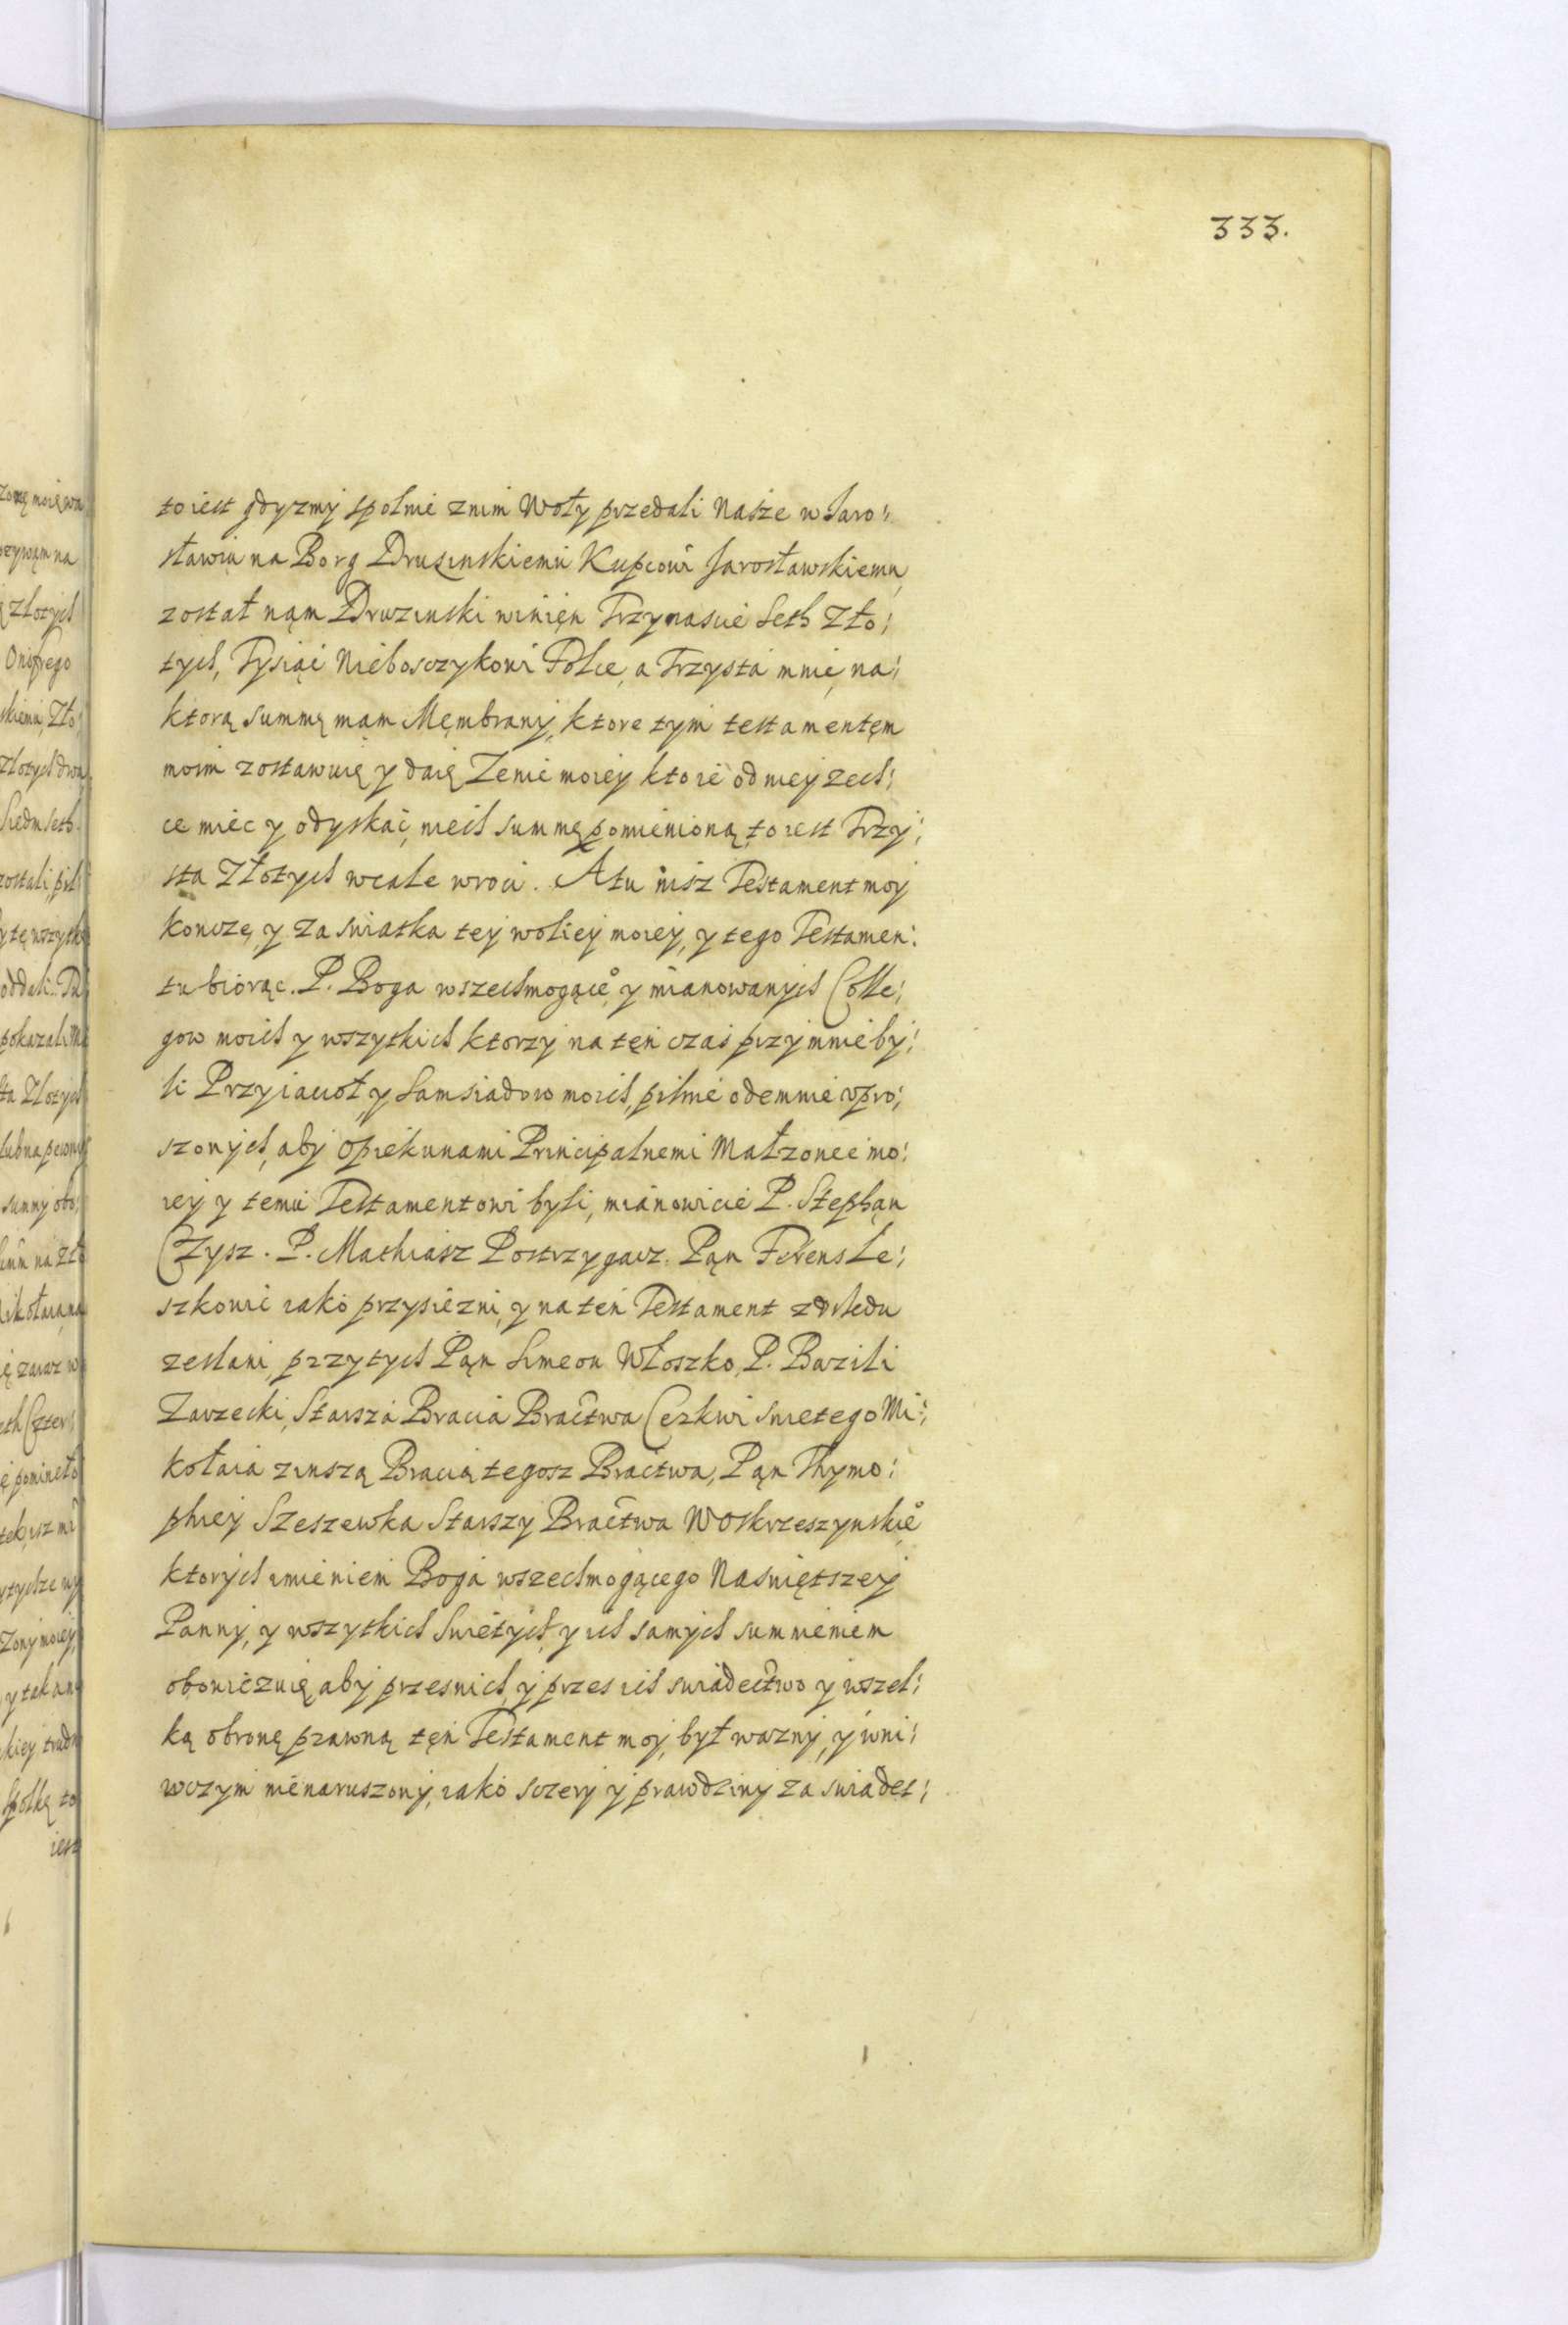 333.
to iest gdyzmÿ spolnie z nim Woły przedali Nasze w Jaro:
sławiu na Borg Druzinskiemu Kupcowi Jarosławskiemu
został nąm Druzinski winięn Trzynascie Seth Zło:
tych, Tysiąc Nieboszczykowi Polce, a Trzysta mnie, na:
ktorą summę mąm Męmbranÿ, ktore tym testamentęm
moim zostawuię y daię Zenie moieÿ ktore od nieÿ zech:
ce miec y odyskac, niech summę pomienioną, to iest Trzÿ:
sta Złotych wcale wroci. A tu iusz Testament moÿ
koncze, y za swiatka teÿ woliey moieÿ, y tego Testamen:
tu biorąc. P. Boga wszechmogące° y mianowanÿch Colle:
gow moich y wszytkich ktorzÿ na tęn czas przÿ mnie bÿ:
li Przyiacioł, y Samsiadow moich, pilnie odemnie vpro:
szonÿch, abÿ opiekunami Principalnemi Małzonce mo:
ieÿ y temu Testamentowi byli, mianowicie P. Stephąn
Czysz. P. Mathiasz Postrzygacz. Pąn Fedens Le:
szkowic iako przysiezni, y na ten Testament z Vrzędu
zesłani, przy tych Pąn Simeon Włoszko, P. Bazili
Zarzecki, Starsza Bracia Bractwa Cerkwi swietego Mi:
kołaia z inszą Bracią tegosz Bractwa, Pąn Thymo:
phieÿ Szeszewka Starszy Bractwa Woskrzeszynskie°
ktorÿch imieniem Boga wszechmogącego Naswiętszeÿ
Pannÿ, y wszytkich Swietÿch, y ich samÿch summieniem
obowiezuię, abÿ przes nich, ÿ przes ich swiadectwo ÿ wszel:
ką obronę prawną tęn Testament moÿ, był waznÿ, ÿ w ni:
wczym nienaruszonÿ, iako sczerÿ ÿ prawdziwÿ za swiadec: